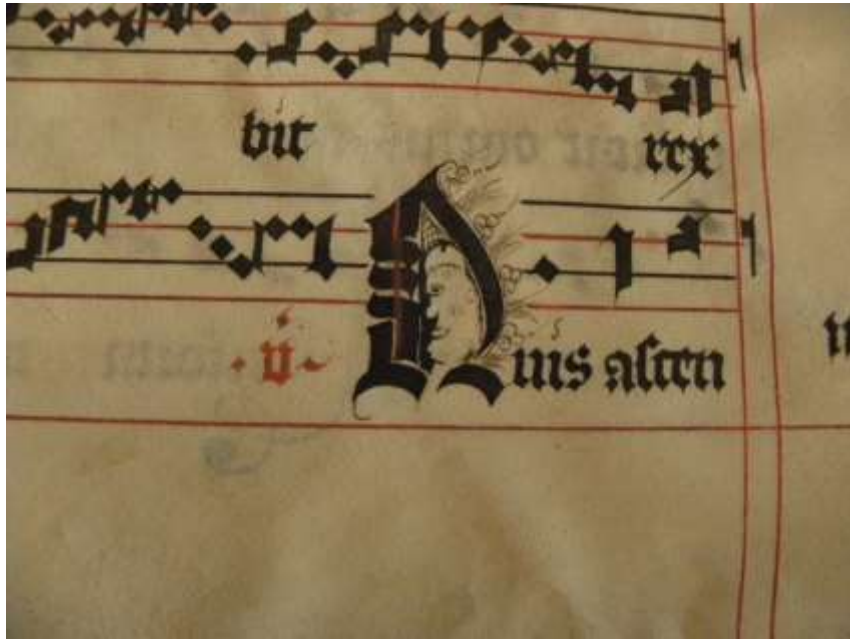 bit rex
·v· Quis ascen